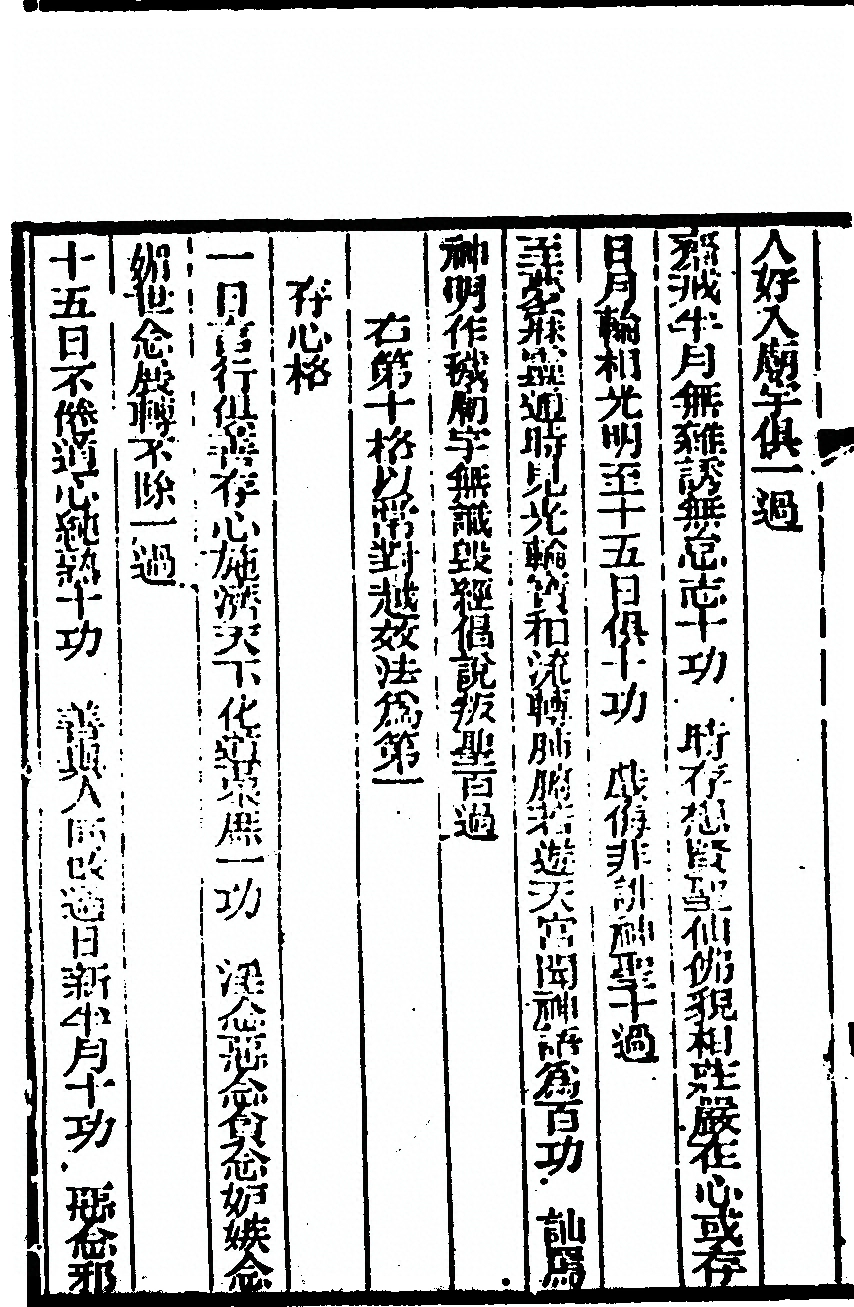 人好入廟宇俱一過
齋戒半月無雜誘無怠志十功 時存想賢聖仙佛貌相莊嚴在心或存
日月輪相光明至十五日俱十功 戲侮非訕神聖十過
至夢寐靈通時見光輪寶和流轉肺腑若遊天宮聞神語為百功 訕罵
神明作穢廟宇無識毀經倡說叛聖百過
右第十格以常對越效法為第一
存心格
一日言行俱善存心施濟天下化導眾愚一功 淫念惡念貪念妒嫉念
媚世念展轉不除一過
十五日不倦道心純熟十功 善與人同改過日新半月十功 惡念邪